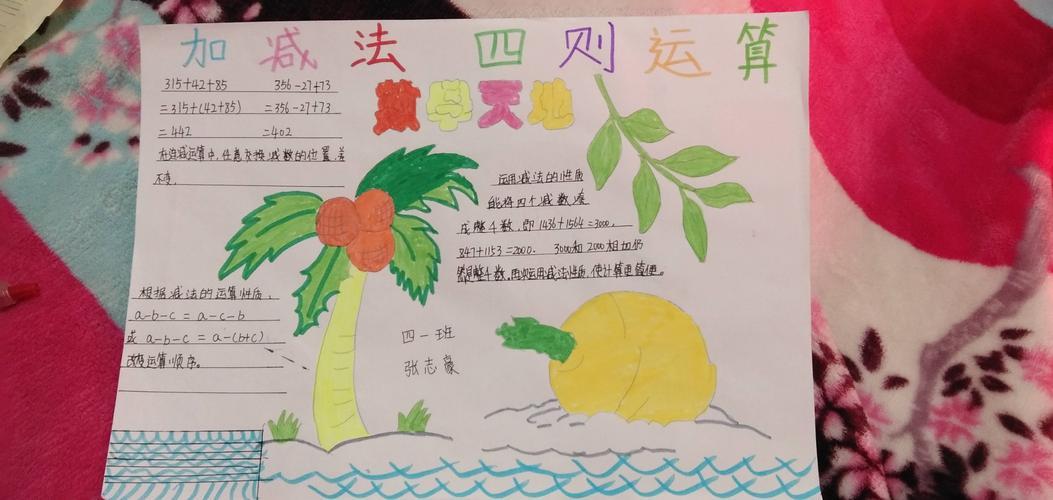 加减法 四则运算
数学天地
315+42+85 356-27+73
=315+(42+85) =356-27+73
=442 =402
在连减运算中，任意交换减数的位置，差
不变。
运用减法的性质
能将四个减数凑
成整千数，即1436+1564=3000，
847+1153=2000． 3000和2000相加仍
是整千数，再次运用减法性质，使计算更简便。
根据减法的运算性质，
a-b-c=a-c-b
或a-b-c=a-(b+c)
改变运算顺序。
四一班
张志豪